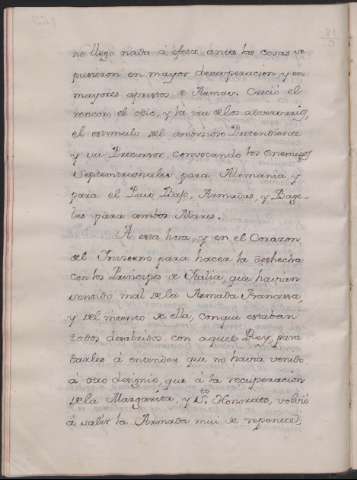 no llegò nada à efeto, antes las cosas se
pusieron en mayor desesperacion, y en
mayores aprietos de Armas. Creciò el
rencor, el odio, y la
el estimulo del ambicioso Pretendiente
y su Precursor convocando los enemigos
Septentrionales para Alemania, y
para el Pais Baxo, Armadas, y Bage-
les para ambos Mares.
A esta hora, y en el Corazon
del Invierno para hacer la deshecha
con los Principes de Italia, que havian
sentido mal de la Armada Francesa
y del intento de ella, conque estaban
todos desabridos con aquel Rey, para
darles à entender que no havia venido
à otro designio, que à la recuperacion
de la Margarita, y Sto. Honorato, volviò
à salir la Armada mui de repente;